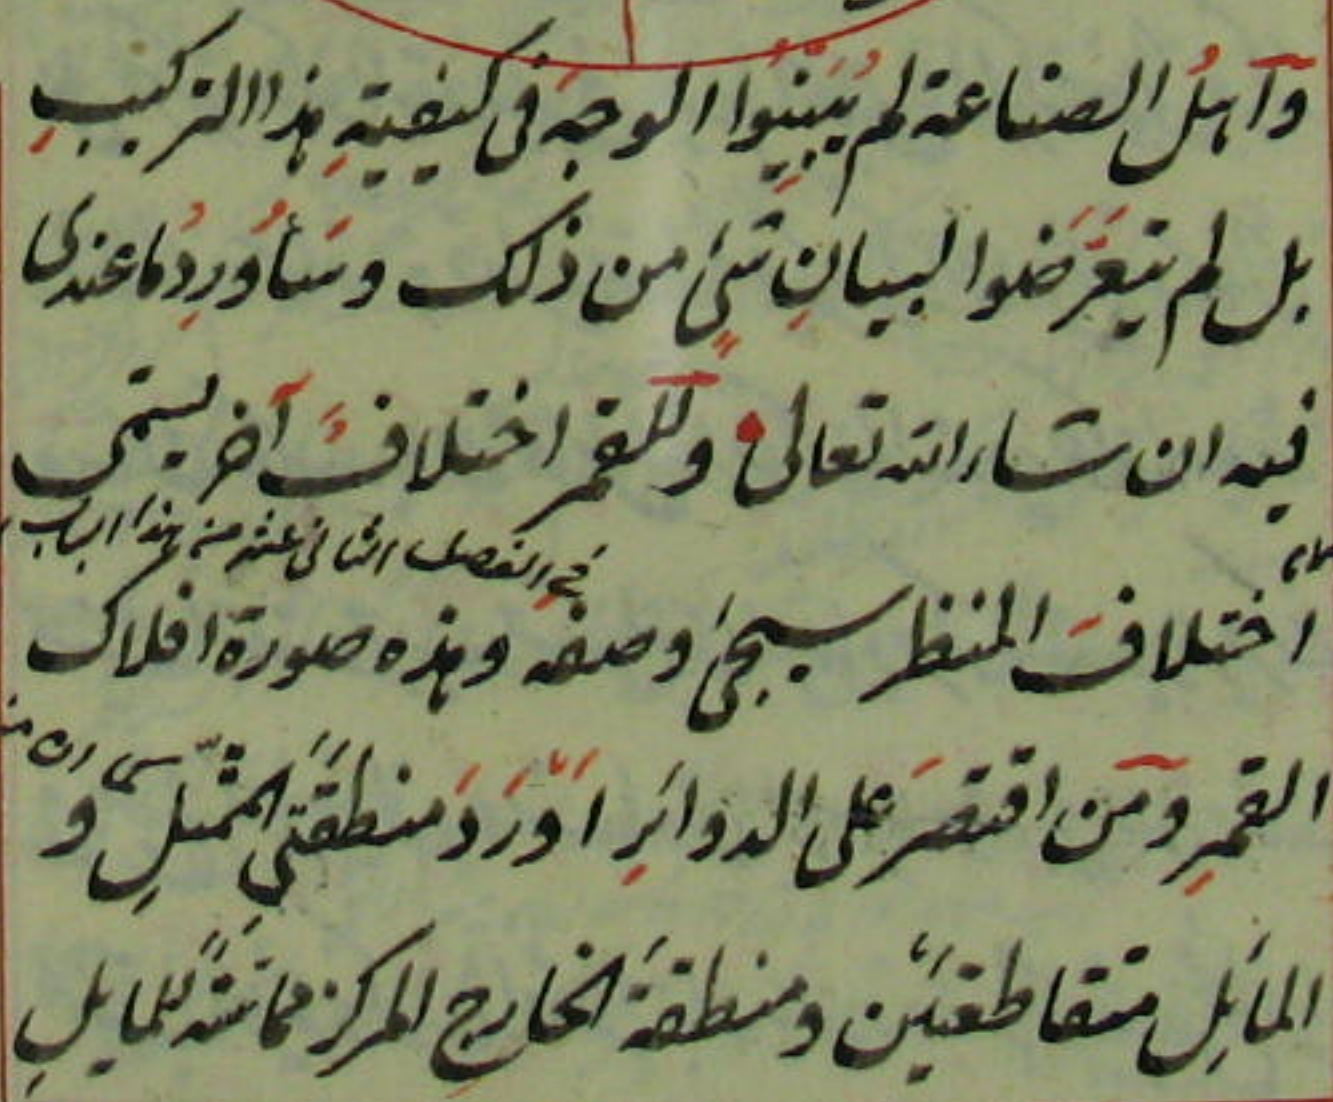 وَآهلُ الصناعة لم يُبَيِّنُوا الوجهَ فى كيفيةِ هذا التركيبِ
بل لم يتعَرَّضَوا لبيانِ شىءٍ من ذلك وسَأُورِدُ ما عندى
فيه ان شاء الله تعالى وللقمر اختلافٌ آخر يسمّى
فى الفصل الثانى عشر من هذا الباب
اختلافَ المنظر سيجىء وصفه وهذه صورة افلاك
القمرِ ومن اقتصرَ على الدوائرِ اَوْرَدَ منطقتَىِ الممثّلِ و
المائِلِ متقاطعتَين ومنطقةَ الخارجِ المركز مماسّةً للمايلِ